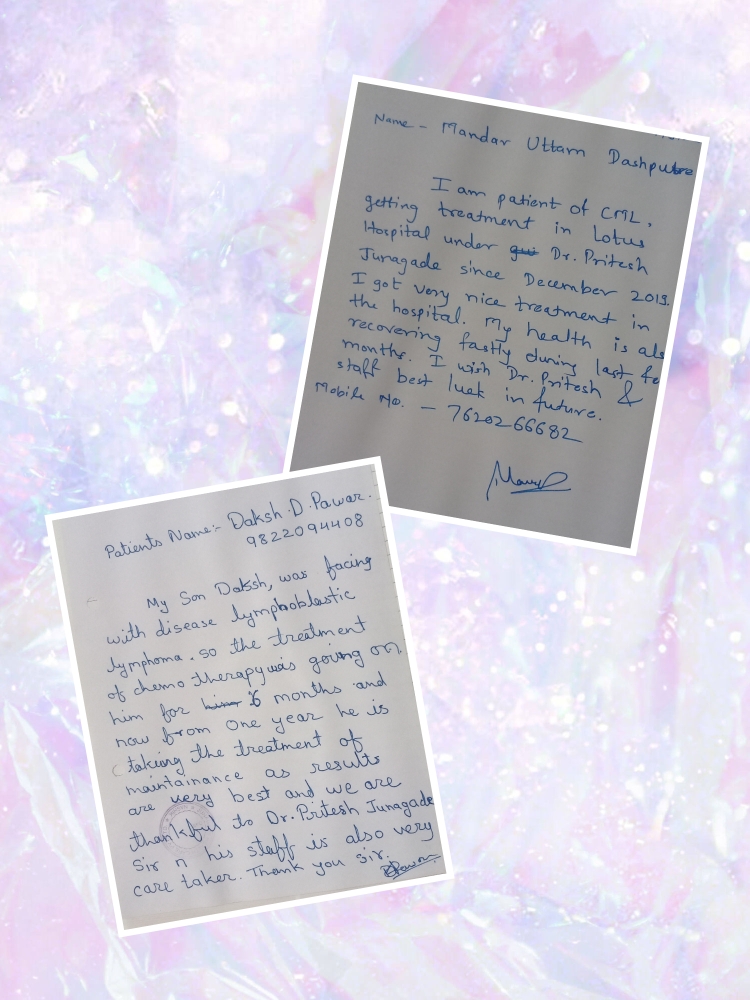 Name - Mandar Uttam Dashputre
I am patient of CML,
getting treatment in Lotus
Hospital under Dr. Pritesh
Junagade since December 2019.
I got very nice treatment in
the hospital. My health is als
recovering fastly during last fe
months. I wish Dr. Pritesh &
staff best luck in future.
Mobile No. - 7620266682
Patients Name:- Daksh.D.Pawar.
9822094408
My Son Daksh, was facing
with disease lymphoblastic
lymphoma. so the treatment
of chemo therapy was goiung on
him for him 6 months and
now from one year he is
taking the treatment of
maintainance as results
are very best and we are
thankful to Dr. Pritesh Junagade
Sir n his staff is also very
care taker. Thank you sir.
DPawar